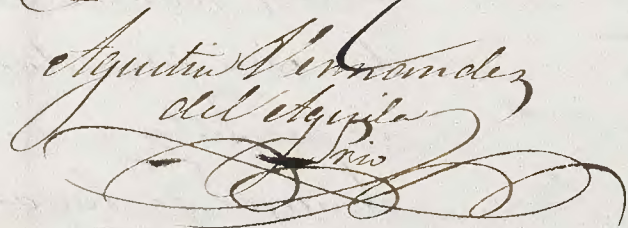 Agustin Hernandez
del Aguila
Srio